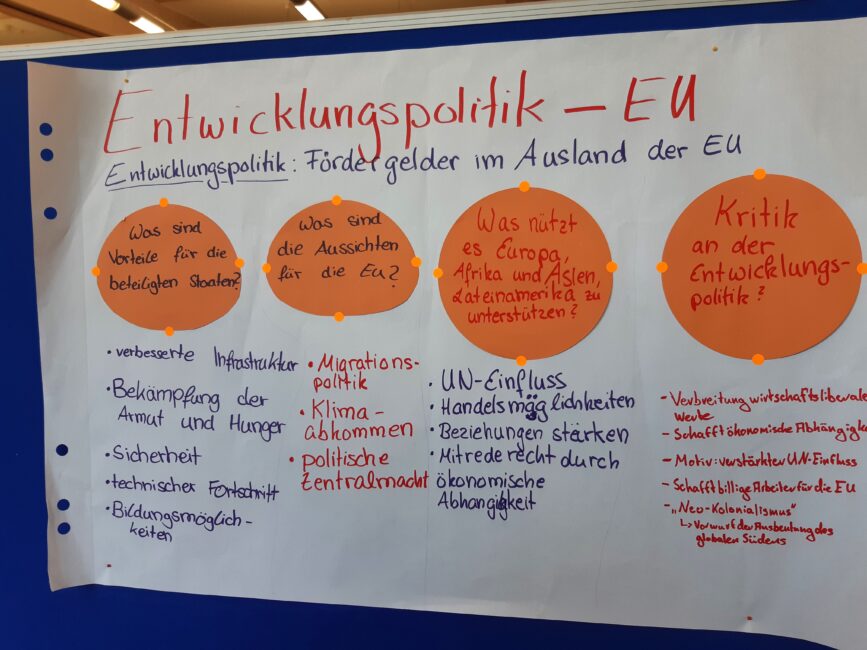 Entwicklungspolitik – EU
Entwicklungspolitik: Fördergelder im Ausland der EU
Was sind
Vorteile für die
beteiligten Staaten?
• verbesserte Infrastruktur
• Bekämpfung der
Armut und Hunger
• Sicherheit
• technischer Fortschritt
• Bildungsmöglich-
keiten
Was sind
die Aussichten
für die Eu?
• Migrations-
politik
• Klima-
abkommen
• politische
Zentralmacht
Was nützt
es Europa,
Afrika und Asien,
Lateinamerika zu
unterstützen?
• UN-Einfluss
• Handelsmöglichkeiten
• Beziehungen stärken
• Mitrederecht durch
ökonomische
Abhängigkeit
Kritik
an der
Entwicklungs-
politik?
- Verbreitung wirtschaftsliberale
Werte
- Schafft ökonomische Abhängigke
- Motiv: verstärkter UN-Einfluss
- Schafft billige Arbeiter für die EU
- „Neo-Kolonialismus"
↳ Vorwurf der Ausbeutung des
globalen Südens